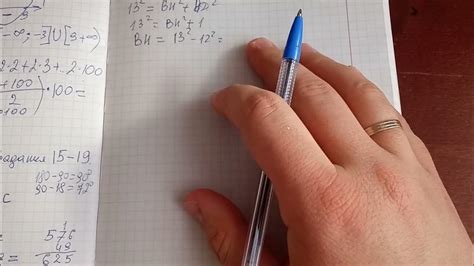 -∞;-3]∪[3+∞)
2·2+2·3+..2·100
+100)
2
·100=
100
задания 15-19
180-90=90°
90-18=72°
с
576
49
625
13²=BH²+12²
13²=BH²+1
BH=13²-12²=